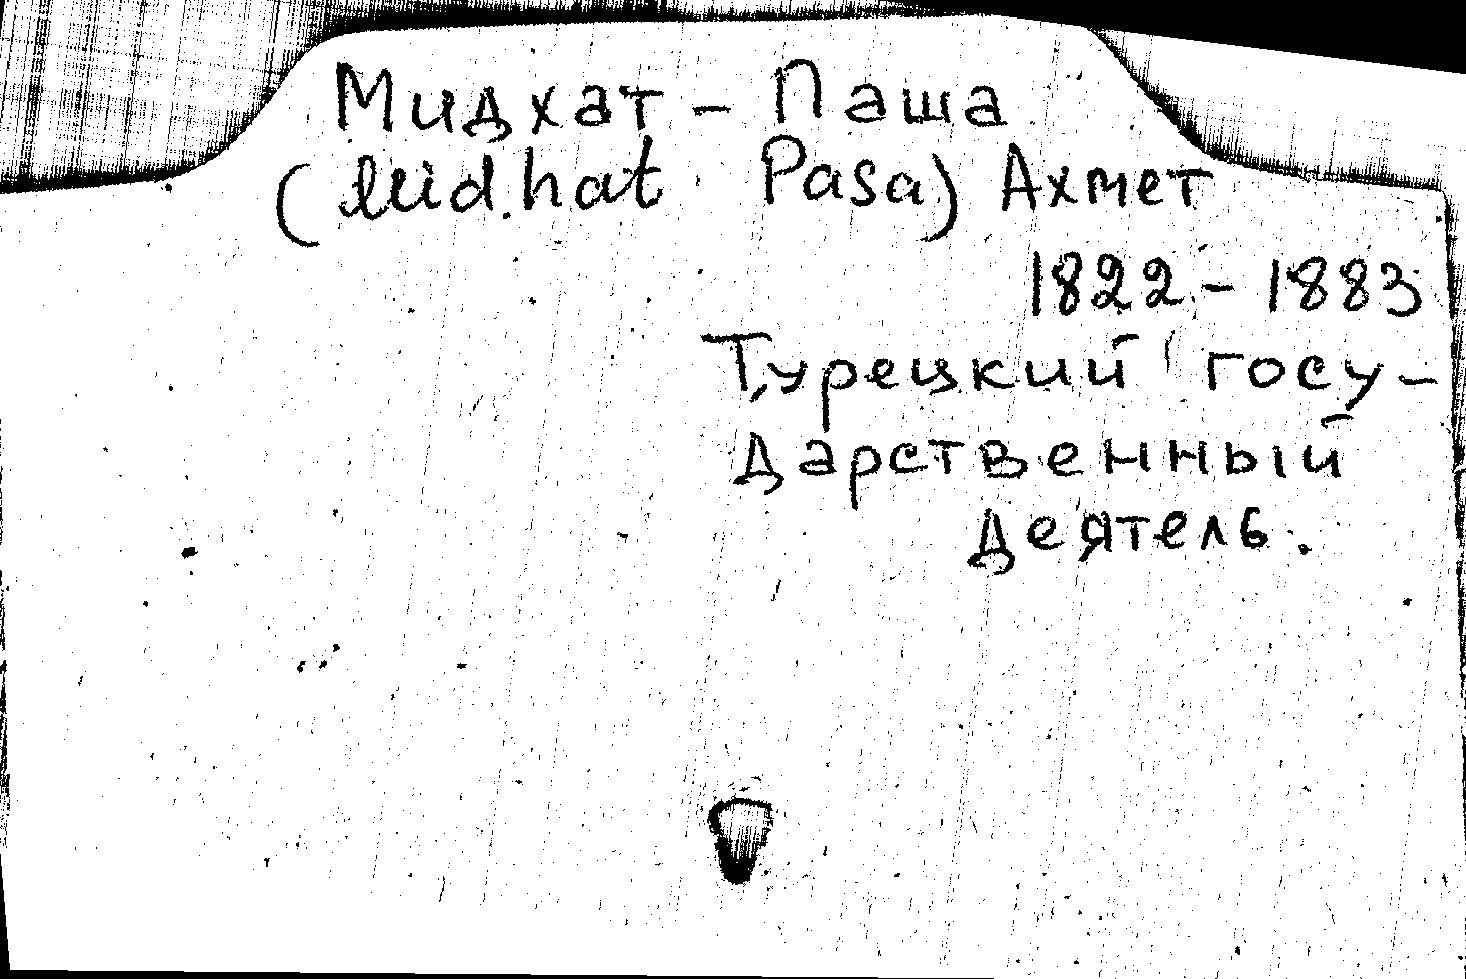 Мидхат - Паша
(Midhat Pasa) Ахмет
1822 - 1883
Турецкий госу-
дарственный
деятель.